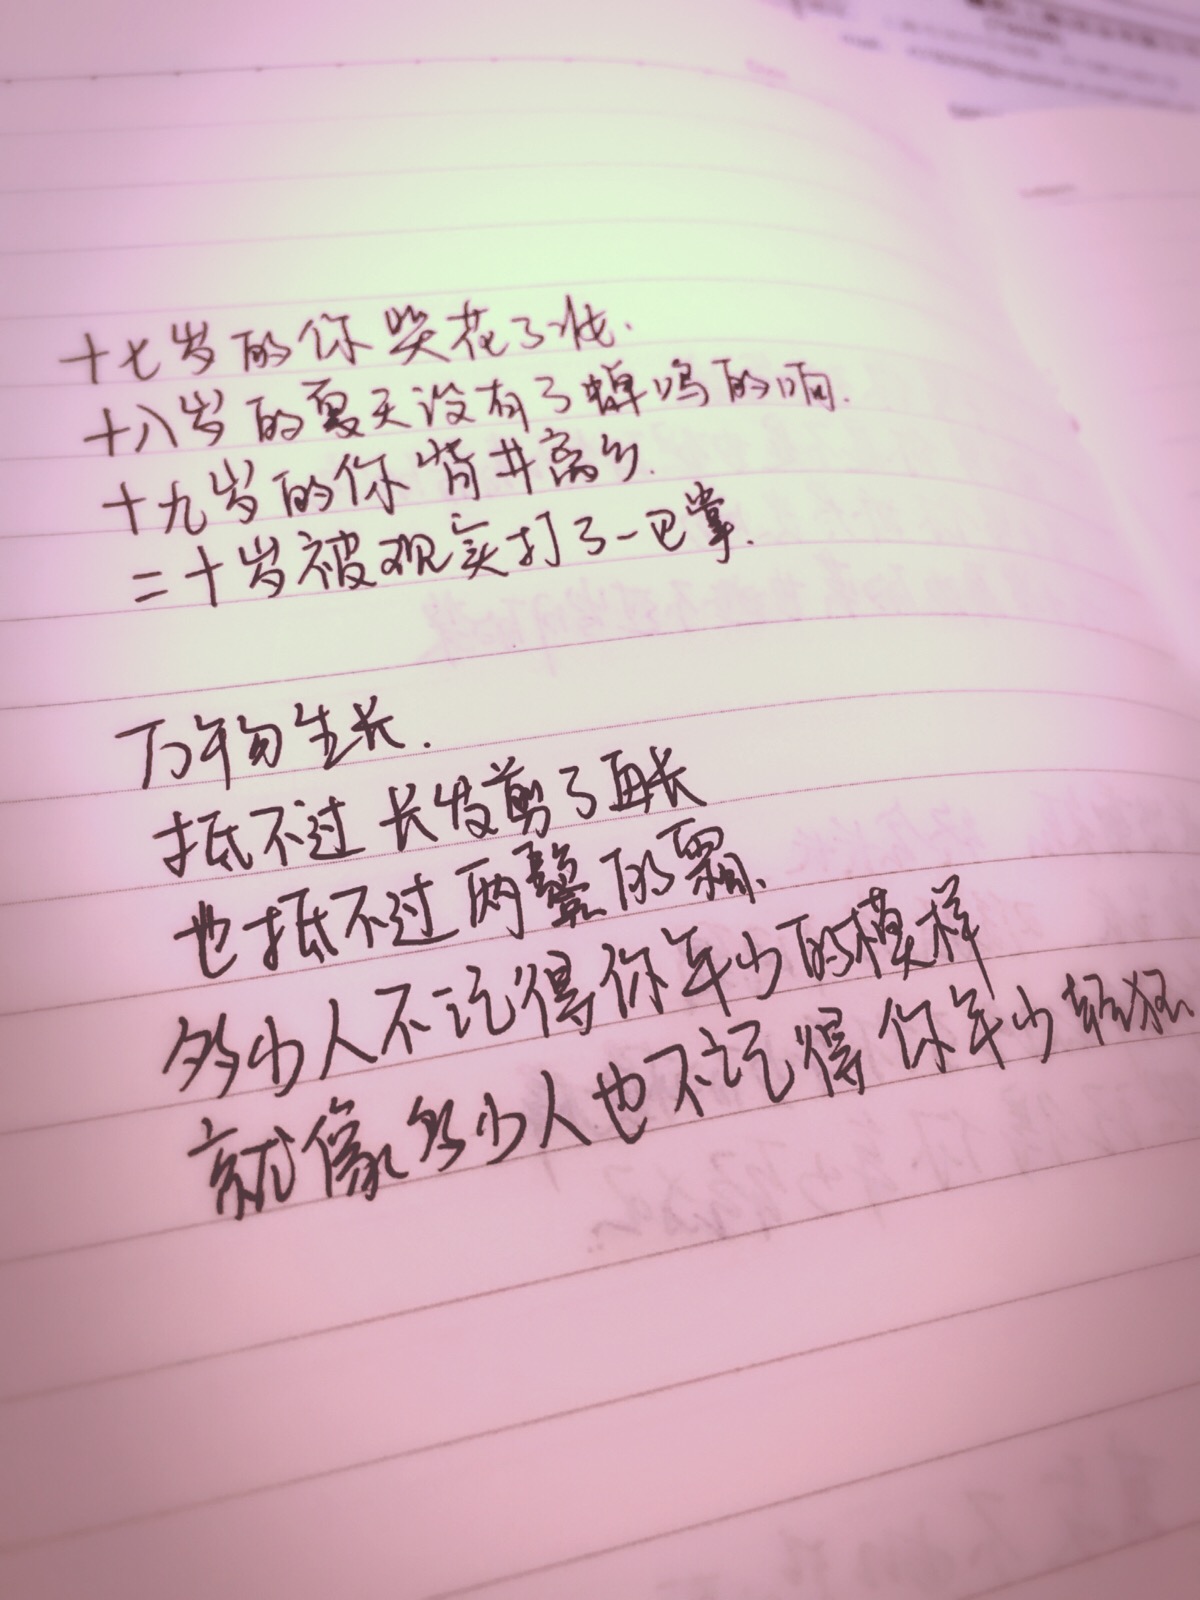 十七岁的你哭花了妆.
十八岁的夏天没有了蝉鸣的响.
十九岁的你背井离乡.
二十岁被现实打了一巴掌.
万物生长.
抵不过长发剪了再长
也抵不过两鬓的霜.
多少人不记得你年少的模样
就像多少人也不记得你年少轻狂